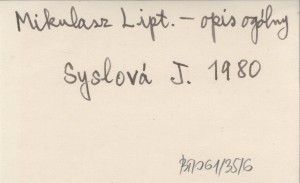 Mikulasz Lipt. – opis ogólny
Syslová J. 1980